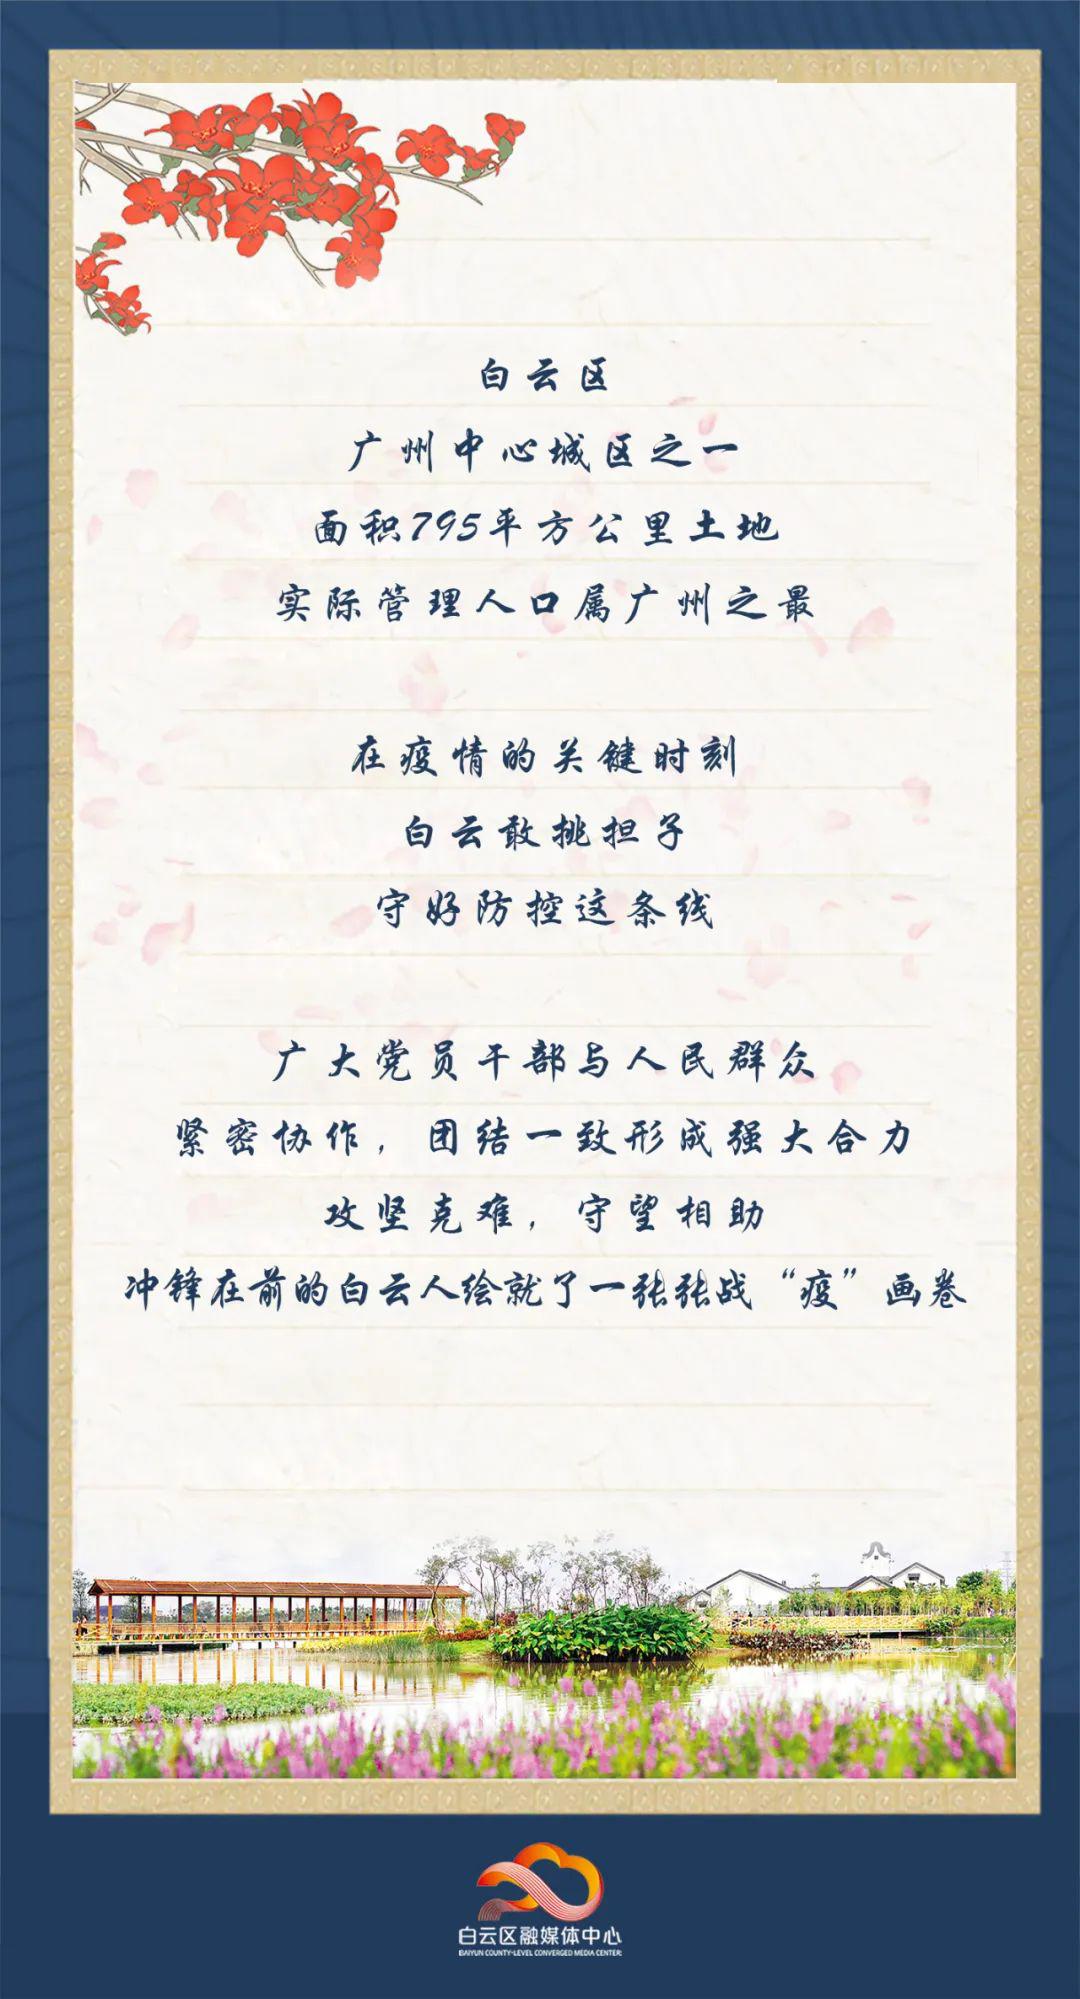 白云区
广州中心城区之一
面积795平方公里土地
实际管理人口属广州之最
在疫情的关键时刻
白云敢挑担子
守好防控这条线
广大党员干部与人民群众
紧密协作，团结一致形成强大合力
攻坚克难，守望相助
冲锋在前的白云人绘就了一张张战“疫”画卷
白云区融媒体中心
BAIYUN COUNTY-LEVEL CONVERGED MEDIA CENTER